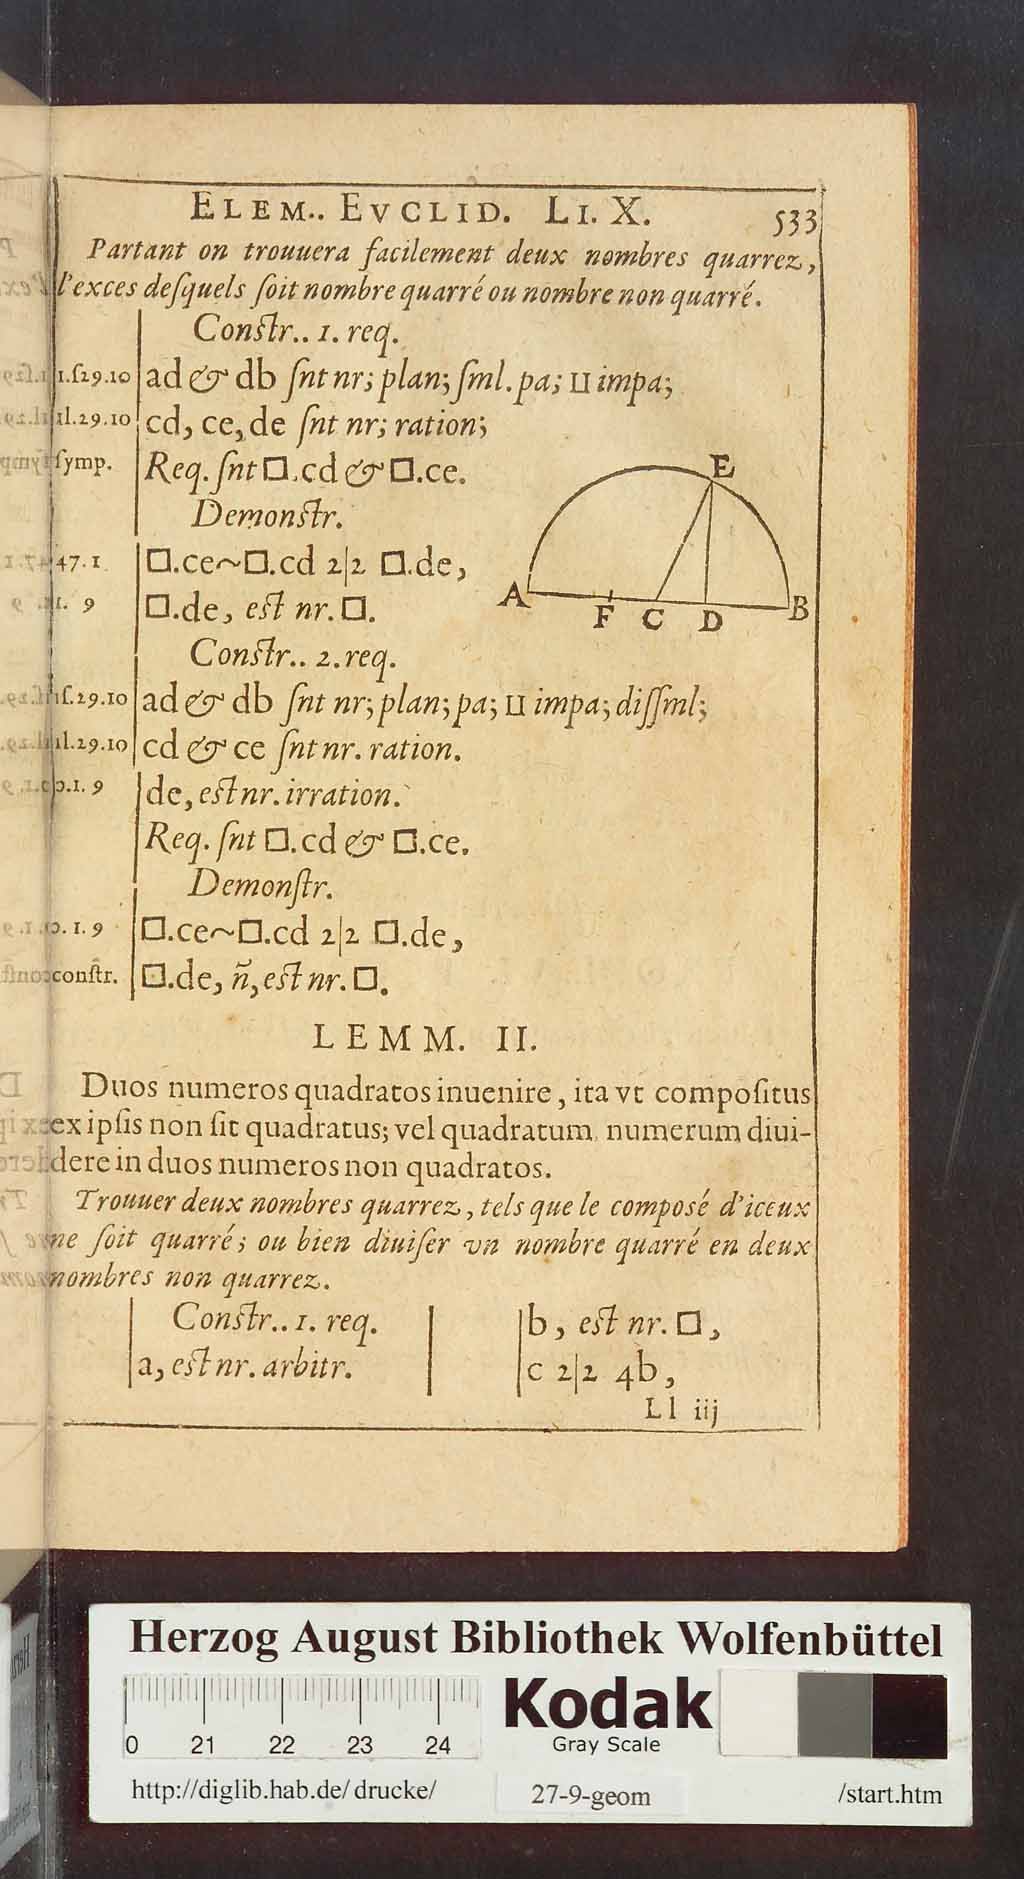 ELEM.. EVCLID. LI. X. 533
Partant on trouuera facilement deux nombres quarrez,
l'exces deſquels ſoit nombre quarré ou nombre non quarré.
Conſtr.. 1. req.
1.ſ29.10 ad & db ſnt nr; plan; ſml. pa; ⊔ impa;
1l.29.10 cd, ce, de ſnt nr; ration;
ſymp. Req. ſnt □.cd & □.ce.
Demonſtr.
47.1 □.ce~□.cd 2|2 □.de,
1. 9 □.de, eſt nr. □.
Conſtr.. 2. req.
1ſ.29.10 ad & db ſnt nr; plan; pa; ⊔ impa; diſſml;
1l.29.10 cd & ce ſnt nr. ration.
.1. 9 de, eſt nr. irration.
Req. ſnt □.cd & □.ce.
Demonſtr.
.1.9 □.ce~□.cd 2|2 □.de,
conſtr. □.de, ñ, eſt nr. □.
E
A F C D B
LEMM. II.
Duos numeros quadratos inuenire, ita vt compoſitus
ex ipſis non ſit quadratus; vel quadratum numerum diui-
dere in duos numeros non quadratos.
Trouuer deux nombres quarrez, tels que le composé d'iceux
ne ſoit quarré; ou bien diuiſer vn nombre quarré en deux
nombres non quarrez.
Conſtr.. 1. req.
a, eſt nr. arbitr.
b, eſt nr. □,
c 2|2 4b,
Ll iij
Herzog August Bibliothek Wolfenbüttel
0 21 22 23 24
Kodak
Gray Scale
http://diglib.hab.de/drucke/ 27-9-geom /start.htm